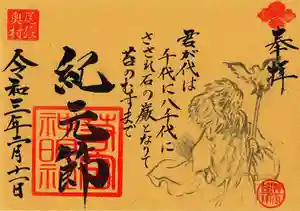 奉拝
君が代は
千代に八千代に
さざれ石の巌となりて
苔のむすまで
紀元節
令和三年二月十一日
尾張
奥村